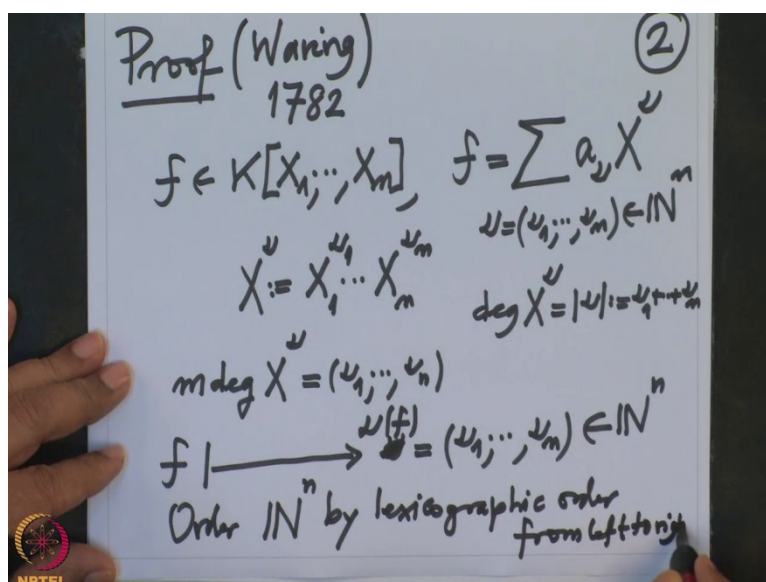 Proof (Waring) ②
1782
f ∈ K[X₁,…,Xₙ], f = ∑ a_ν X^ν
ν = (ν₁,…,νₙ) ∈ ℕⁿ
X^ν := X₁^ν₁ ⋯ Xₙ^νₙ
deg X^ν = |ν| := ν₁+⋯+νₙ
mdeg X^ν = (ν₁,…,νₙ)
f ↦ ν(f) = (ν₁,…,νₙ) ∈ ℕⁿ
Order ℕⁿ by lexicographic order
from left to righ
NPTEL